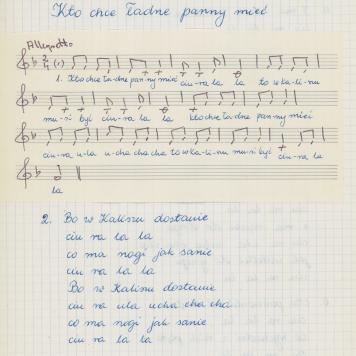 Kto chce ładne panny mieć
Allegretto
1. Kto chce ła-dne pan-ny mieć ciu-ra la la to w Ka-li-nu
mu-si być ciu-ra la la kto chce ładne pan-ny mieć
ciu-ra u-la u-cha cha cha to w ka-li-nu mu-si być ciu-ra la
la
2. Bo w Kalinu dostanie
ciu ra la la
co ma nogi jak sanie
ciu ra la la
Bo w Kalinu dostanie
ciu ra ula ucha cha cha
co ma nogi jak sanie
ciu ra la la